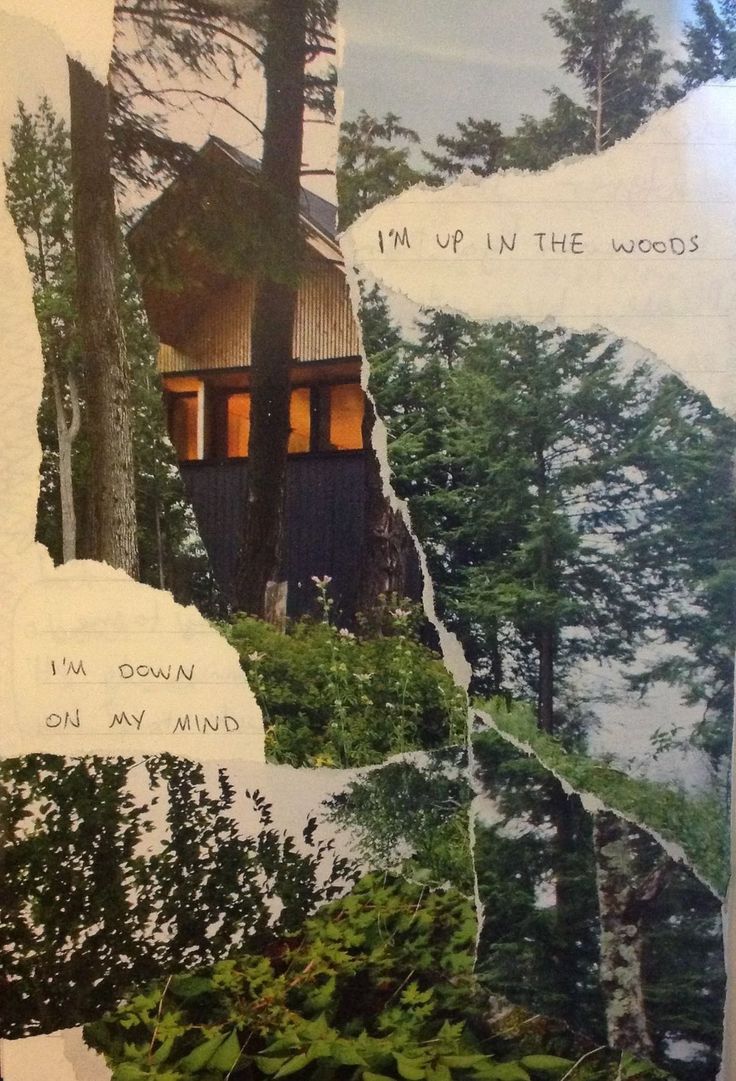 I'M UP IN THE WOODS
I'M DOWN
ON MY MIND